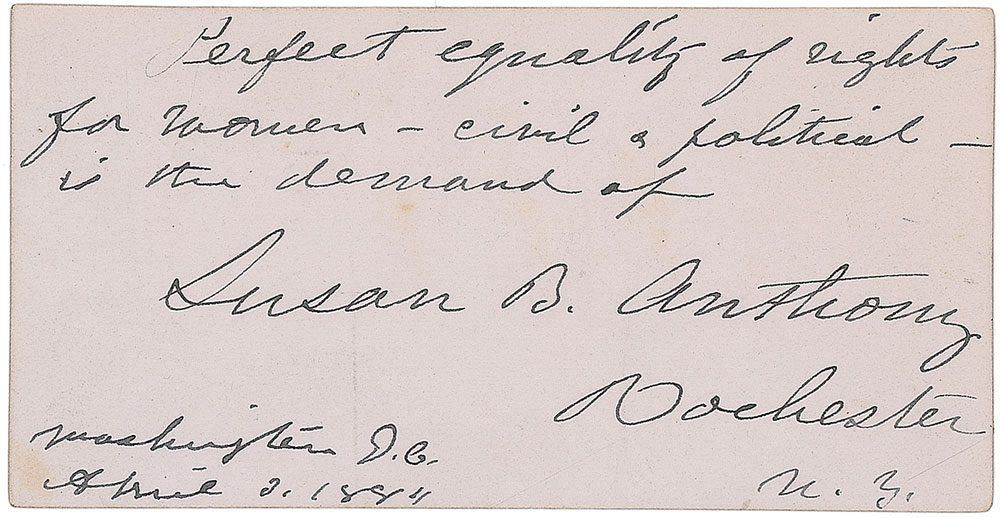 Perfect equality of rights
for women - civil & political -
is the demand of
Susan B. Anthony
Rochester
N. Y.
Washington D.C.
April